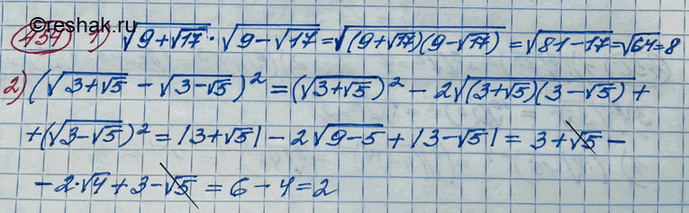 ©reshak.ru
454 1) √(9+√17) · √(9−√17) = √((9+√17)(9−√17)) = √(81−17) = √64 = 8
2) (√(3+√5) − √(3−√5))² = (√(3+√5))² − 2√((3+√5)(3−√5)) +
+(√(3−√5))² = |3+√5| − 2√(9−5) + |3−√5| = 3+√5 −
−2·√4 + 3−√5 = 6−4=2